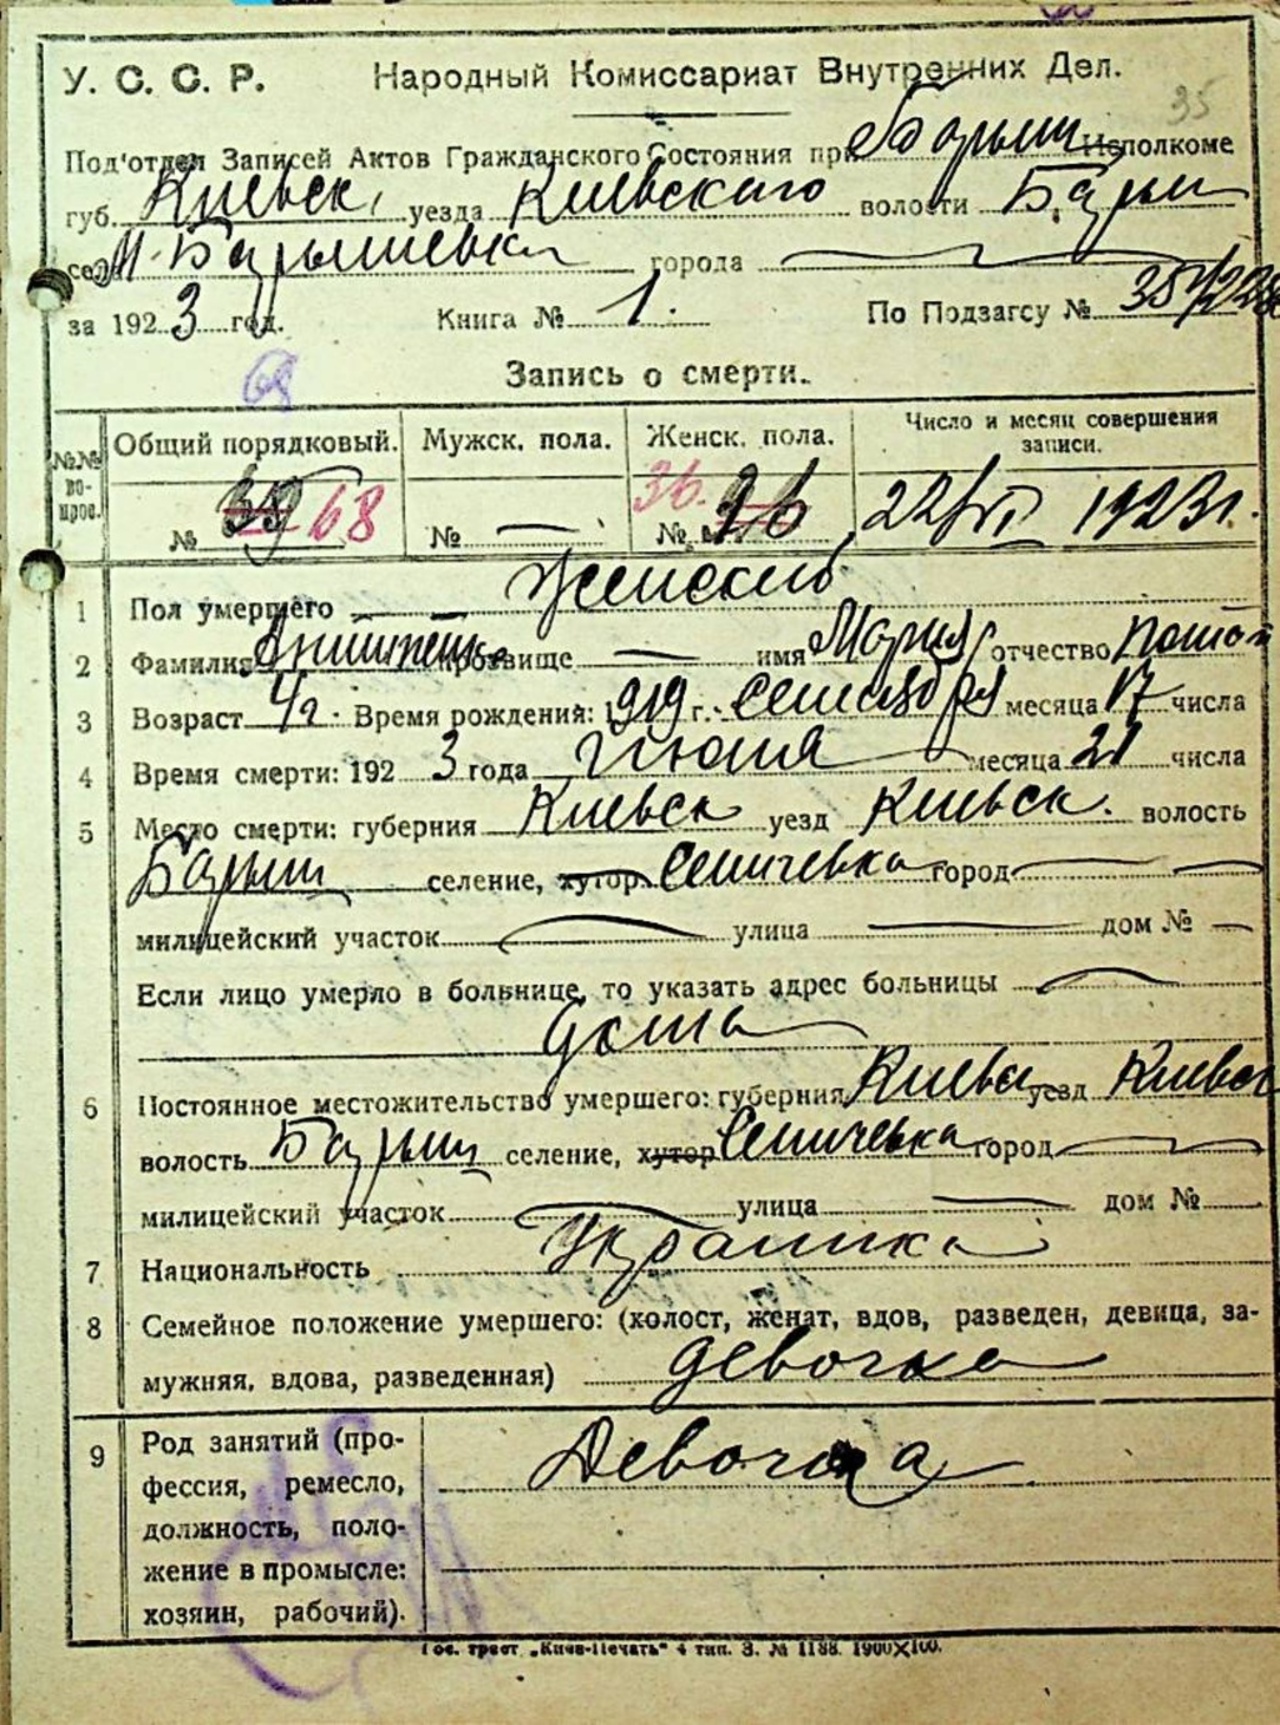 35
У. С. С. Р. Народный Комиссариат Внутренних Дел.
Под'отдел Записей Актов Гражданского Состояния при Барыш Исполкоме
губ. Киевск, уезда Киевского волости Барыш
село М. Барышевка города
за 1923 год. Книга № 1. По Подзагсу №
68
Запись о смерти.
№№ вопрос. Общий порядковый. Мужск. пола. Женск. пола. Число и месяц совершения записи.
№ 39 68 № — 36. № 26 22/VI 1923 г.
1 Пол умершего Женский
2 Фамилия прозвище — имя Мария отчество
3 Возраст 4 г. Время рождения: 1919 г. Сентября месяца 17 числа
4 Время смерти: 1923 года Июня месяца 21 числа
5 Место смерти: губерния Киевск уезд Киевск. волость
Барыш селение, хутор Сеничевка город —
милицейский участок — улица — дом № —
Если лицо умерло в больнице, то указать адрес больницы —
дома
6 Постоянное местожительство умершего: губерния Киевск уезд Киевск
волость Барыш селение, хутор Сеничевка город —
милицейский участок — улица — дом №
7 Национальность Украинка
8 Семейное положение умершего: (холост, женат, вдов, разведен, девица, за-
мужняя, вдова, разведенная) девочка
9 Род занятий (про-
фессия, ремесло,
должность, поло-
жение в промысле:
хозяин, рабочий).
Девочка
Гос. трест „Киев-Печать" 4 тип. З. № 1188. 1900X100.